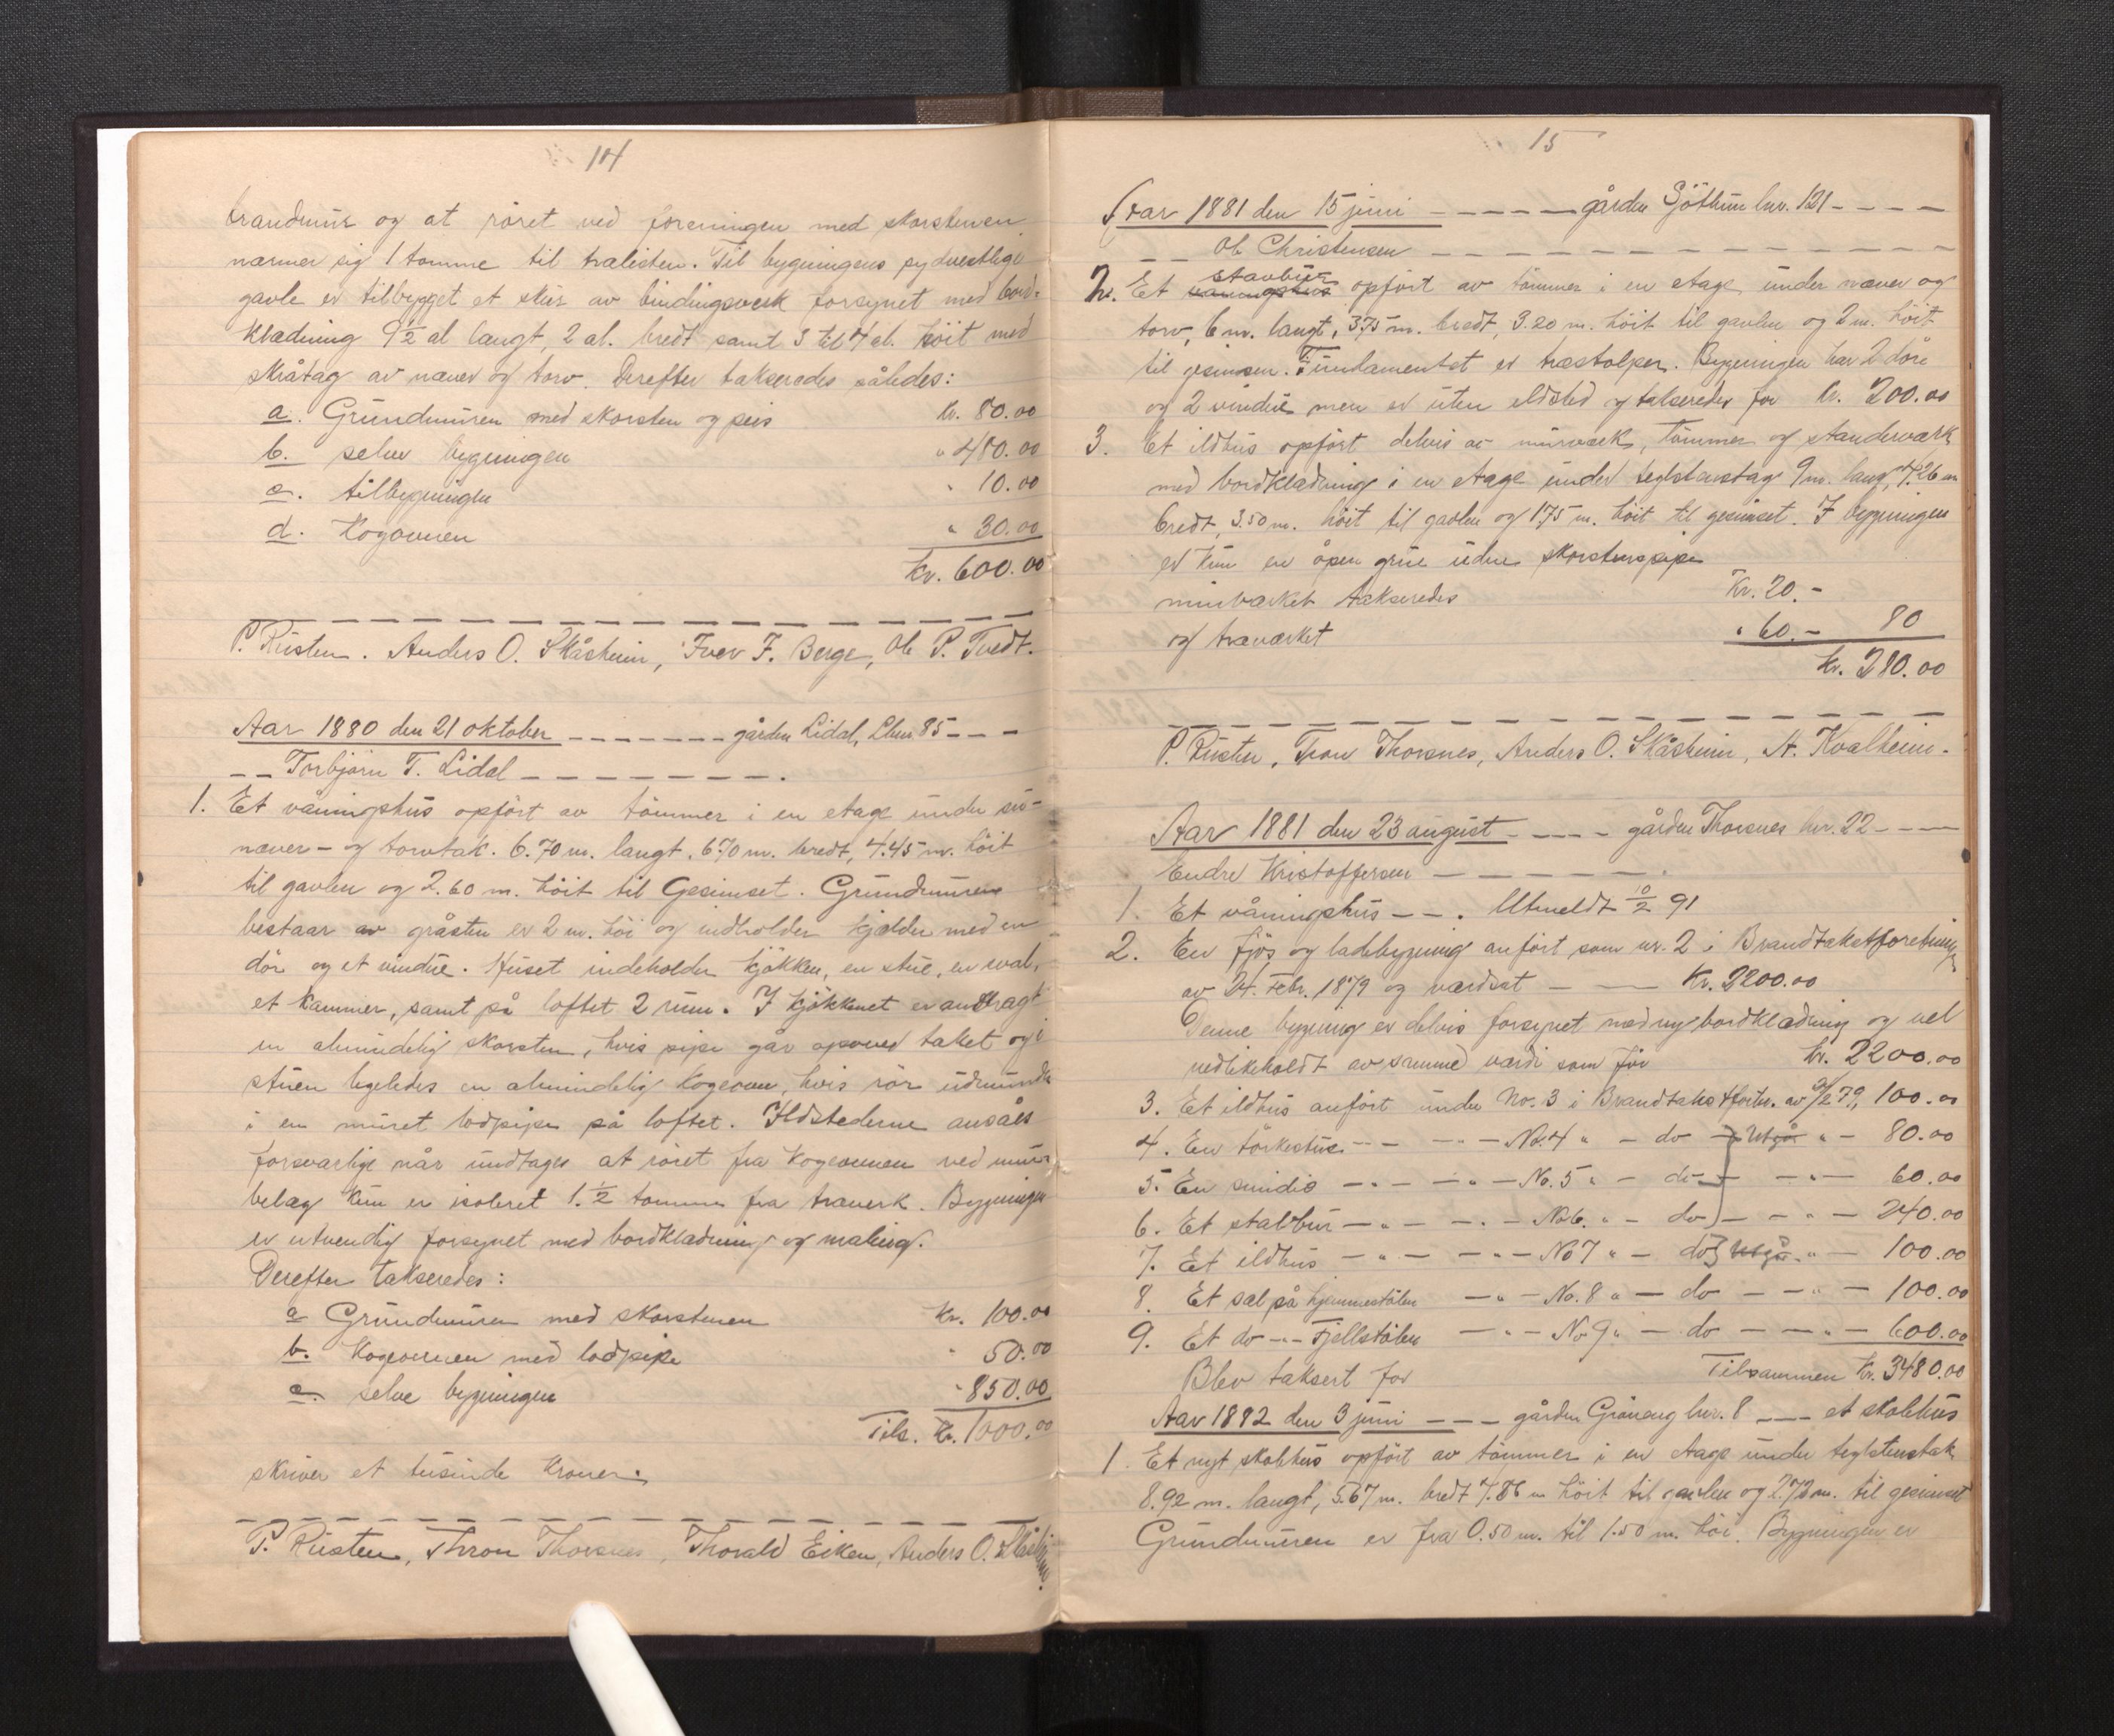 14
brandmur og at röret ved foreningen med skorstenen
nærmer sig 1 tomme til trælisten. Til bygningens sydvestlige
gavle er tilbygget et skur av bindingsverk forsynet med bord-
klædning 9½ al langt, 2 al. bredt samt 3 til 4 al. höit med
skråtag av næver og torv. Derefter takseredes således:
a. Grundmuren med skorsten og peis Kr. 80.00
b. selve bygningen " 480.00
c. tilbygningen " 10.00
d. Kogovnen " 30.00
Kr. 600.00
P. Rusten. Anders O. Skåsheim, Iver J. Berge, Ole P. Tvedt.
Aar 1880 den 21 oktober - - - - - - - gården Lidal, Lbnr 85 - - -
- - Torbjörn T. Lidal - - - - - - - - .
1. Et våningshus opfört av tömmer i en etage under
næver- og torvtak. 6.70 m. langt. 6.70 m. bredt, 4.45 m. höit
til gavlen og 2.60 m. höit til Gesimset. Grundmuren
bestaar av gråsten er 2 m. höi og indholder kjælder med en
dör og et vindue. Huset indeholder kjökken, en stue, en sval,
et kammer, samt på loftet 2 rum. I kjökkenet er anbragt
en almindelig skorsten, hvis pipe går opover taket og i
stuen ligeledes en almindelig kogeovn, hvis rör udmunder
i en muret lodpipe på loftet. Ildstederne ansåes
forsvarlige når undtages at röret fra kogeovnen ved mur-
belæg kun er isoleret 1.½ tomme fra træverk. Bygningen
er utvendig forsynet med bordklædning og maling.
Derefter takseredes:
a Grundmuren med skorstenen Kr. 100.00
b. Kogeovnen med lodpipe " 50.00
c. selve bygningen " 850.00
Tils. Kr. 1000.00
skriver et tusinde kroner.
P. Rusten, Thron Thorsnes, Thorald Eiken, Anders O. Skåsheim.
15
Aar 1881 den 15 juni - - - - - gården Sjöthun lnr. 121 - - - -
- - Ole Christensen - - - - - - - - - -
2. Et stavbur opfört av tömmer i en etage under næver og
torv, 6 m. langt, 3.75 m. bredt, 3.20 m. höit til gavlen og 2 m. höit
til gesimsen. Fundamentet er træstolper. Bygningen har 2 döre
og 2 vindue men er uten ildsted og takseredes for Kr. 200.00
3. Et ildhus opfört delvis av murværk, tömmer og standerværk
med bordklædning i en etage under teglstenstag 9 m. langt, 4.26 m
bredt, 3.50 m. höit til gavlen og 1.75 m. höit til gesimset. I bygningen
er kun en åpen grue uden skorstenspipe
murværket takseredes Kr. 20.-
og træværket " 60.- 80
Kr. 280.00
P. Rusten, Tron Thorsnes, Anders O. Skåsheim, N. Kvalheim.
Aar 1881 den 23 august - - - - gården Thorsnes lnr. 22 - - -
Endre Kristoffersen - - - - - .
1. Et våningshus - - . Utmeldt 10/2 91
2. En fjös og ladebygning anfört som nr. 2 i Brandtakstforetning
av 24. Febr. 1879 og værdsat - - Kr. 2200.00
Denne bygning er delvis forsynet med ny bordklædning og vel
vedlikeholdt av samme værdi som för Kr. 2200.00
3. Et ildhus anfört under No. 3 i Brandtakstforetn. av 79, 100.00
4. En törkestue - - - - " - No. 4 " - do - Utgår " - 80.00
5. En smidie - " - - " - No. 5 " - do - - " - 60.00
6. Et stabbur - " - - " - No 6. " - do - - " - 240.00
7. Et ildhus - " - - " - No 7 " - do Utgår " - 100.00
8. Et sæl på hjemmestölen - " - No. 8 " - do - - " - 100.00
9. Et do - " - Fjellstölen - " - No 9 " - do - - " - 600.00
Blev taksert for Tilsammen Kr. 3480.00
Aar 1882 den 3 juni - - - gården Gröneng lnr. 8 - - - et skolehus
1. Et nyt skolehus opfört av tömmer i en etage under teglstenstak
8.92 m. langt, 5.67 m. bredt 4.86 m höit til gavlen og 2.73 m. til gesimset
Grundmuren er fra 0.50 m. til 1.50 m. höi. Bygningen er